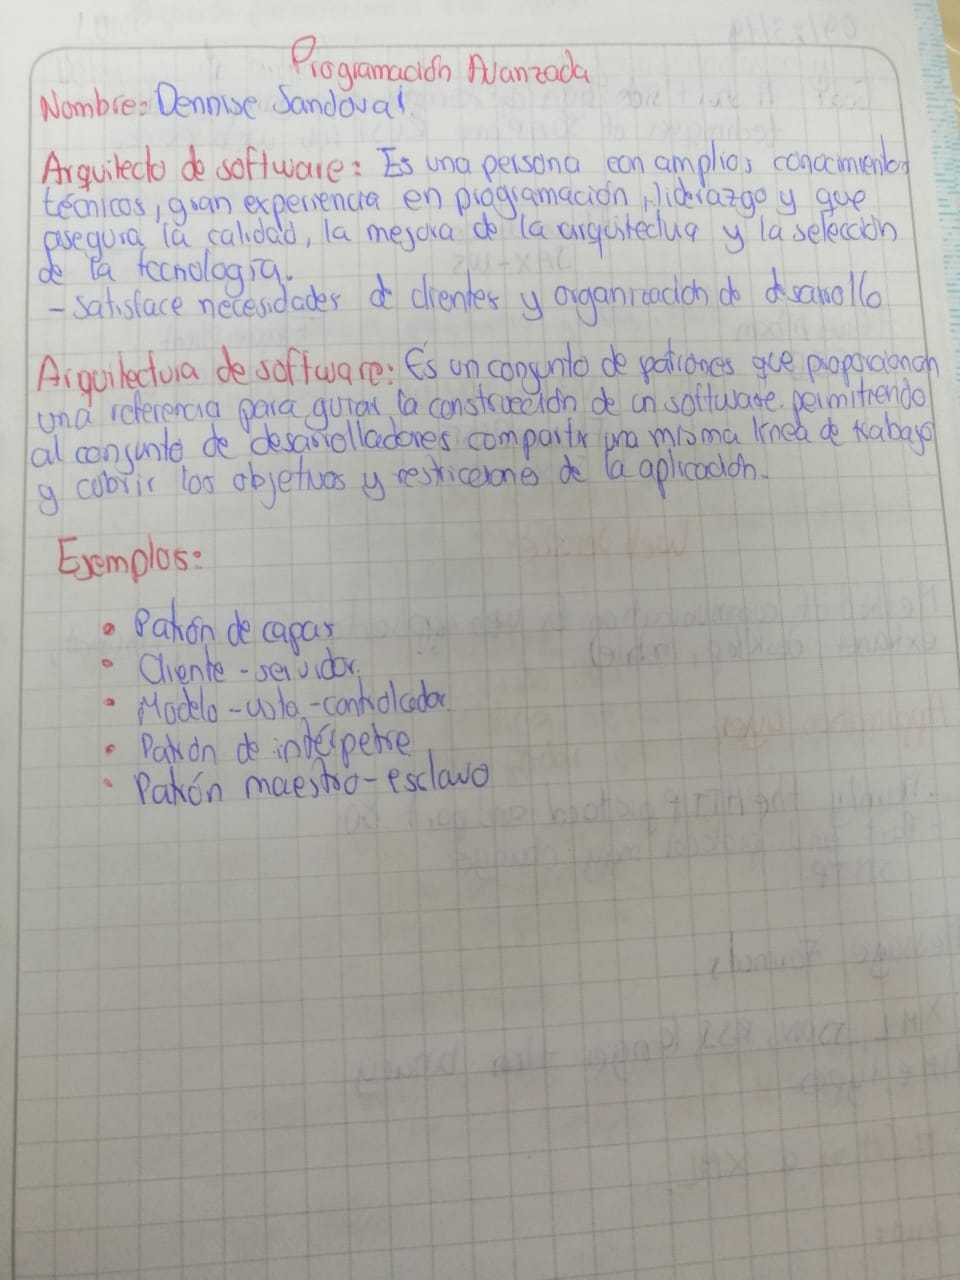 Programación Avanzada
Nombre: Dennise Sandoval.
Arquitecto de software: Es una persona con amplios conocimientos
técnicos, gran experiencia en programación, liderazgo y que
asegura la calidad, la mejora de la arquitectura y la selección
de la tecnología.
- Satisface necesidades de clientes y organización de desarrollo
Arquitectura de software: Es un conjunto de patrones que proporcionan
una referencia para guiar la construcción de un software permitiendo
al conjunto de desarrolladores compartir una misma línea de trabajo
y cubrir los objetivos y restricciones de la aplicación.
Ejemplos:
• Patrón de capas
• Cliente - servidor
• Modelo - vista - controlador
• Patrón de intérpetre
• Patrón maestro - esclavo